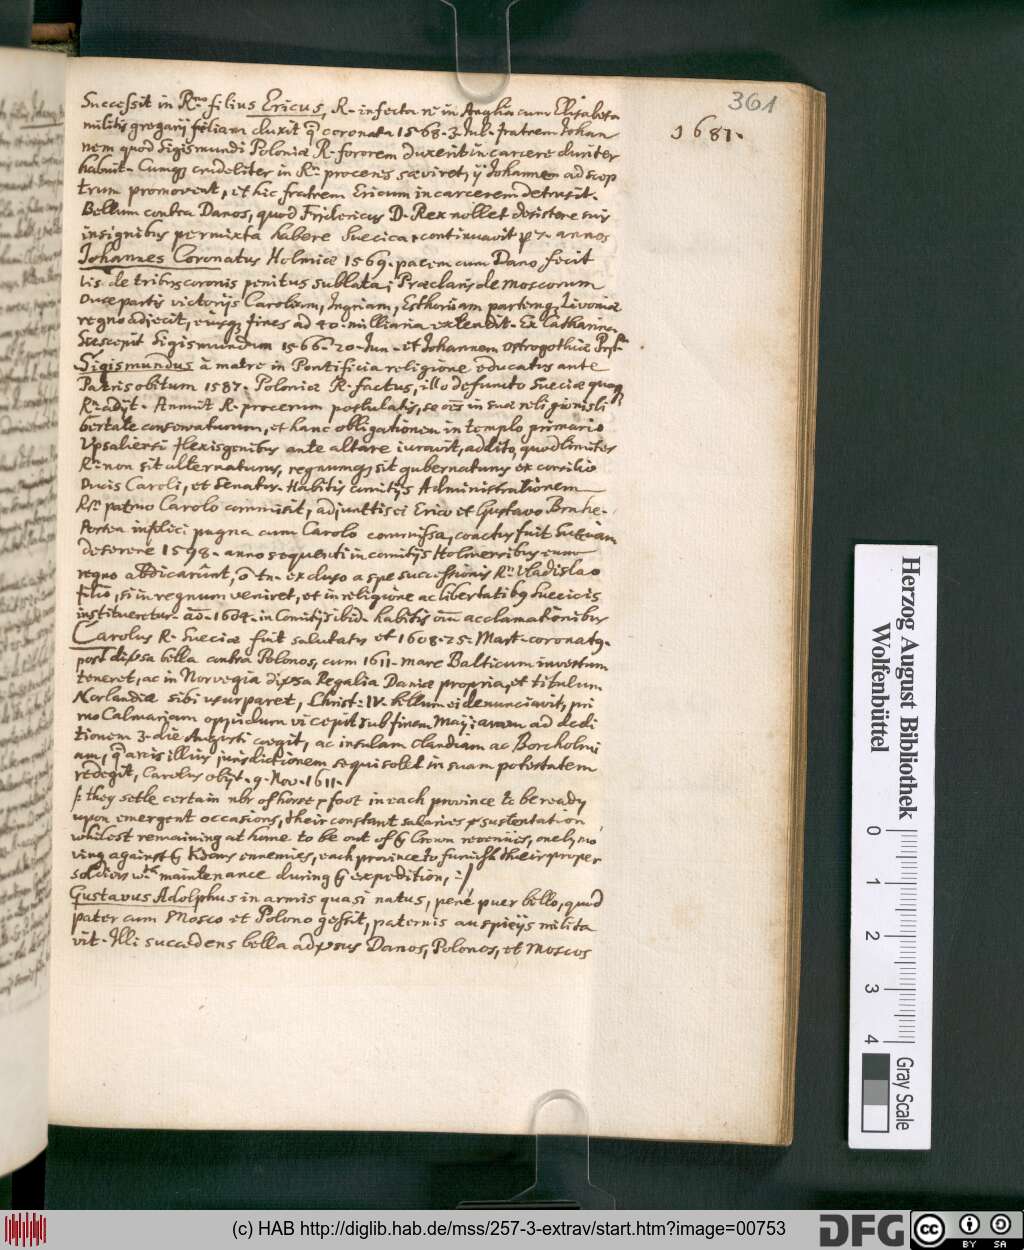 361
1681.
Successit in Rno filius Ericus, R. infecta re in Anglia cum Elisabeta
militis gregarij filiam duxit q coronat. 1568. 3. Jul. fratrem Johan
nem quod Sigismundi Poloniæ R. sororem duxerit in carcere duriter
habuit. Cumq crudeliter in Rni proceres sæviret, ij Johannem ad scep
trum promovent, et hic fratrem Ericum in carcerem detrusit.
Bellum contra Danos, quod Fridericus D. Rex nollet desistere suis
insignibus permixta habere Suecica continuavit 7. annos
Johannes Coronatus Holmiæ 1569. pacem cum Dano fecit
lis de tribus coronis penitus sublata; Præclaris de Moscorum
Duce partis victorijs Careliam, Ingriam, Esthoniam partemq Livoniæ
regno adjecit, ejusq fines ad 40. milliaria extendit. Ex Catharina
Suscepit Sigismundum 1566. 20. Jun. et Johannem Ostrogothiæ
Sigismundus à matre in Pontificia religione educatus ante
Patris obitum 1587. Poloniæ R. factus, illo defuncto Sueciæ quoq
Rm adijt. Annuit R. procerum postulatis, se oes in suæ religionis li
bertate conservaturum, et hanc obligationem in templo primario
Upsaliensi flexis genibus ante altare iuravit, addito, quod limites
Rni non sit alternaturus, regnumq sit gubernaturus ex consilio
Ducis Caroli, et Senator. Habitis comitijs Administrationem
Rni patruo Carolo commisit, adjunctis ei Erico et Gustavo Brahe.
Postea infelici pugna cum Carolo commissa, coactus fuit Sueciam
deserere 1598. anno sequenti in comitijs Holmensibus eum
regno abdicarunt, tn. excluso a spe successionis Rni Vladislao
filio, si in regnum veniret, et in religione ac libertatibq Suecicis
institueretur. ao. 1604. in Comitijs ibid. habitis oium acclamationibus
Carolus R. Sueciæ fuit salutatus et 1608. 25. Mart. coronatq.
post dixsa bella contra Polonos, cum 1611. mare Balticum invertum
teneret, ac in Norvegia dixsa Regalia Daniæ propria, et titulum
Norlandiæ sibi usurparet, Christ: IV. bellum ei denunciavit, pri
mo Calmariam oppidum vi cepit sub finem Maij: arcem ad dedi
tionem 3. die Augusti coegit, ac insulam Olandiam ac Borcholmi
am, q arcis illius jurisdictionem sequi solet in suam potestatem
redegit, Carolus obijt. 9. Nov. 1611.
/: they setle certain nbr of horse & foot in each province to be ready
upon emergent occasions, their constant salaries & sustentation
whilest remaining at home to be out of ye Crown revenues, onely mo
ving against ye Kdoms ennemies, each province to furnish their proper
soldiers wth maintenance during ye expedition, :/
Gustavus Adolphus in armis quasi natus, penè puer bello, quod
pater cum Mosco et Polono gessit, paternis auspicijs milita
vit. Illi succedens bella adversus Danos, Polonos, et Moscos
Herzog August Bibliothek
Wolfenbüttel
0 1 2 3 4
Gray Scale
(c) HAB http://diglib.hab.de/mss/257-3-extrav/start.htm?image=00753
DFG
cc BY SA